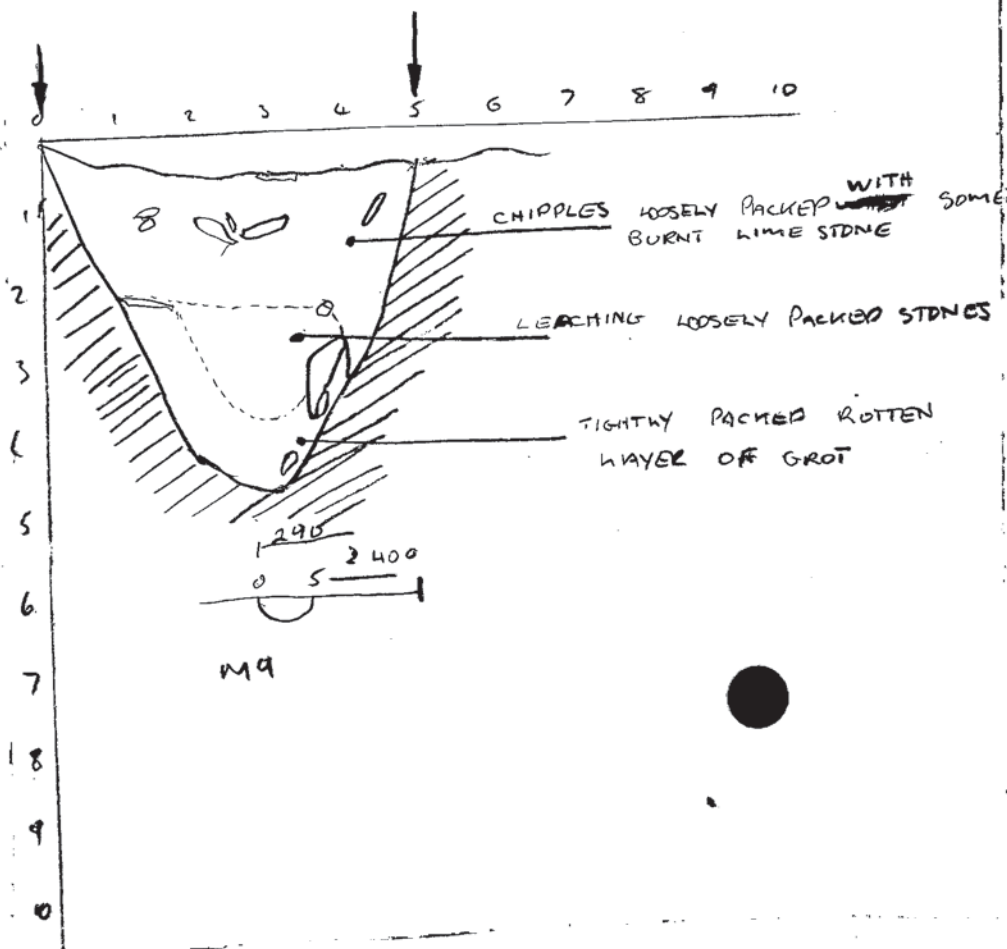 0 1 2 3 4 5 6 7 8 9 10
1
CHIPPLES LOOSELY PACKED WITH SOME
BURNT LIMESTONE
2
LEACHING LOOSELY PACKED STONES
3
TIGHTLY PACKED ROTTEN
LAYER OFF GROT
4
5
290
2400
0 5
6
M9
7
8
9
10